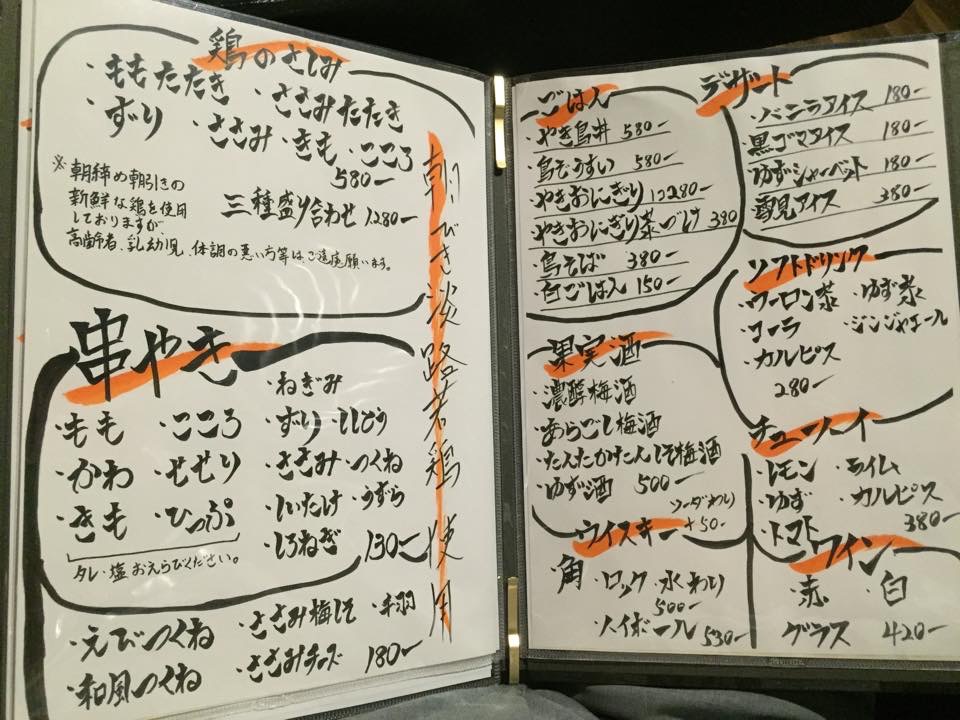 鶏のさしみ
・ももたたき ・ささみたたき
・ずり ・ささみ ・きも ・こころ
580-
三種盛り合わせ 1280-
※朝締め朝引きの
新鮮な鶏を使用
しておりますが、
高齢者、乳幼児、体調の悪い方等は、ご遠慮願います。
朝びき淡路若鶏使用
串やき
もも こころ
かわ せせり
きも ・ひっぷ
タレ・塩おえらびください。
・ねぎみ
・ずり ・ししとう
・ささみ ・つくね
・しいたけ ・うずら
・しろねぎ 130-
・えびつくね ・ささみ梅しそ ・手羽
・和風つくね ・ささみチーズ 180-
ごはん
・やき鳥丼 580-
・鳥ぞうすい 580-
・やきおにぎり 1ヶ280-
・やきおにぎり茶づけ 380
・鳥そば 380-
・白ごはん 150-
デザート
・バニラアイス 180-
黒ゴマアイス 180-
ゆずシャーベット 180-
雪見アイス 380-
ソフトドリンク
・ウーロン茶 ・ゆず茶
・コーラ ・ジンジャエール
・カルピス
280-
果実酒
・濃醇梅酒
・あらごし梅酒
・たんたかたんしそ梅酒
・ゆず酒 500-
ソーダわり
+50-
チューハイ
・レモン ・ライム
・ゆず ・カルピス
・トマト 380-
ウイスキー
角 ・ロック ・水わり
500-
・ハイボール 530-
ワイン
・赤 ・白
グラス 420-